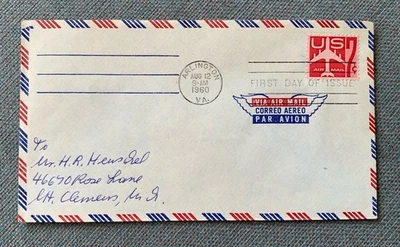 ARLINGTON
AUG 12
9-AM
1960
VA.
US
7c
AIR MAIL
FIRST DAY OF ISSUE
VIA AIR MAIL
CORREO AEREO
PAR AVION
To
Mr. H.R. Henschel
46670 Rose Lane
Mt. Clemens, M I.